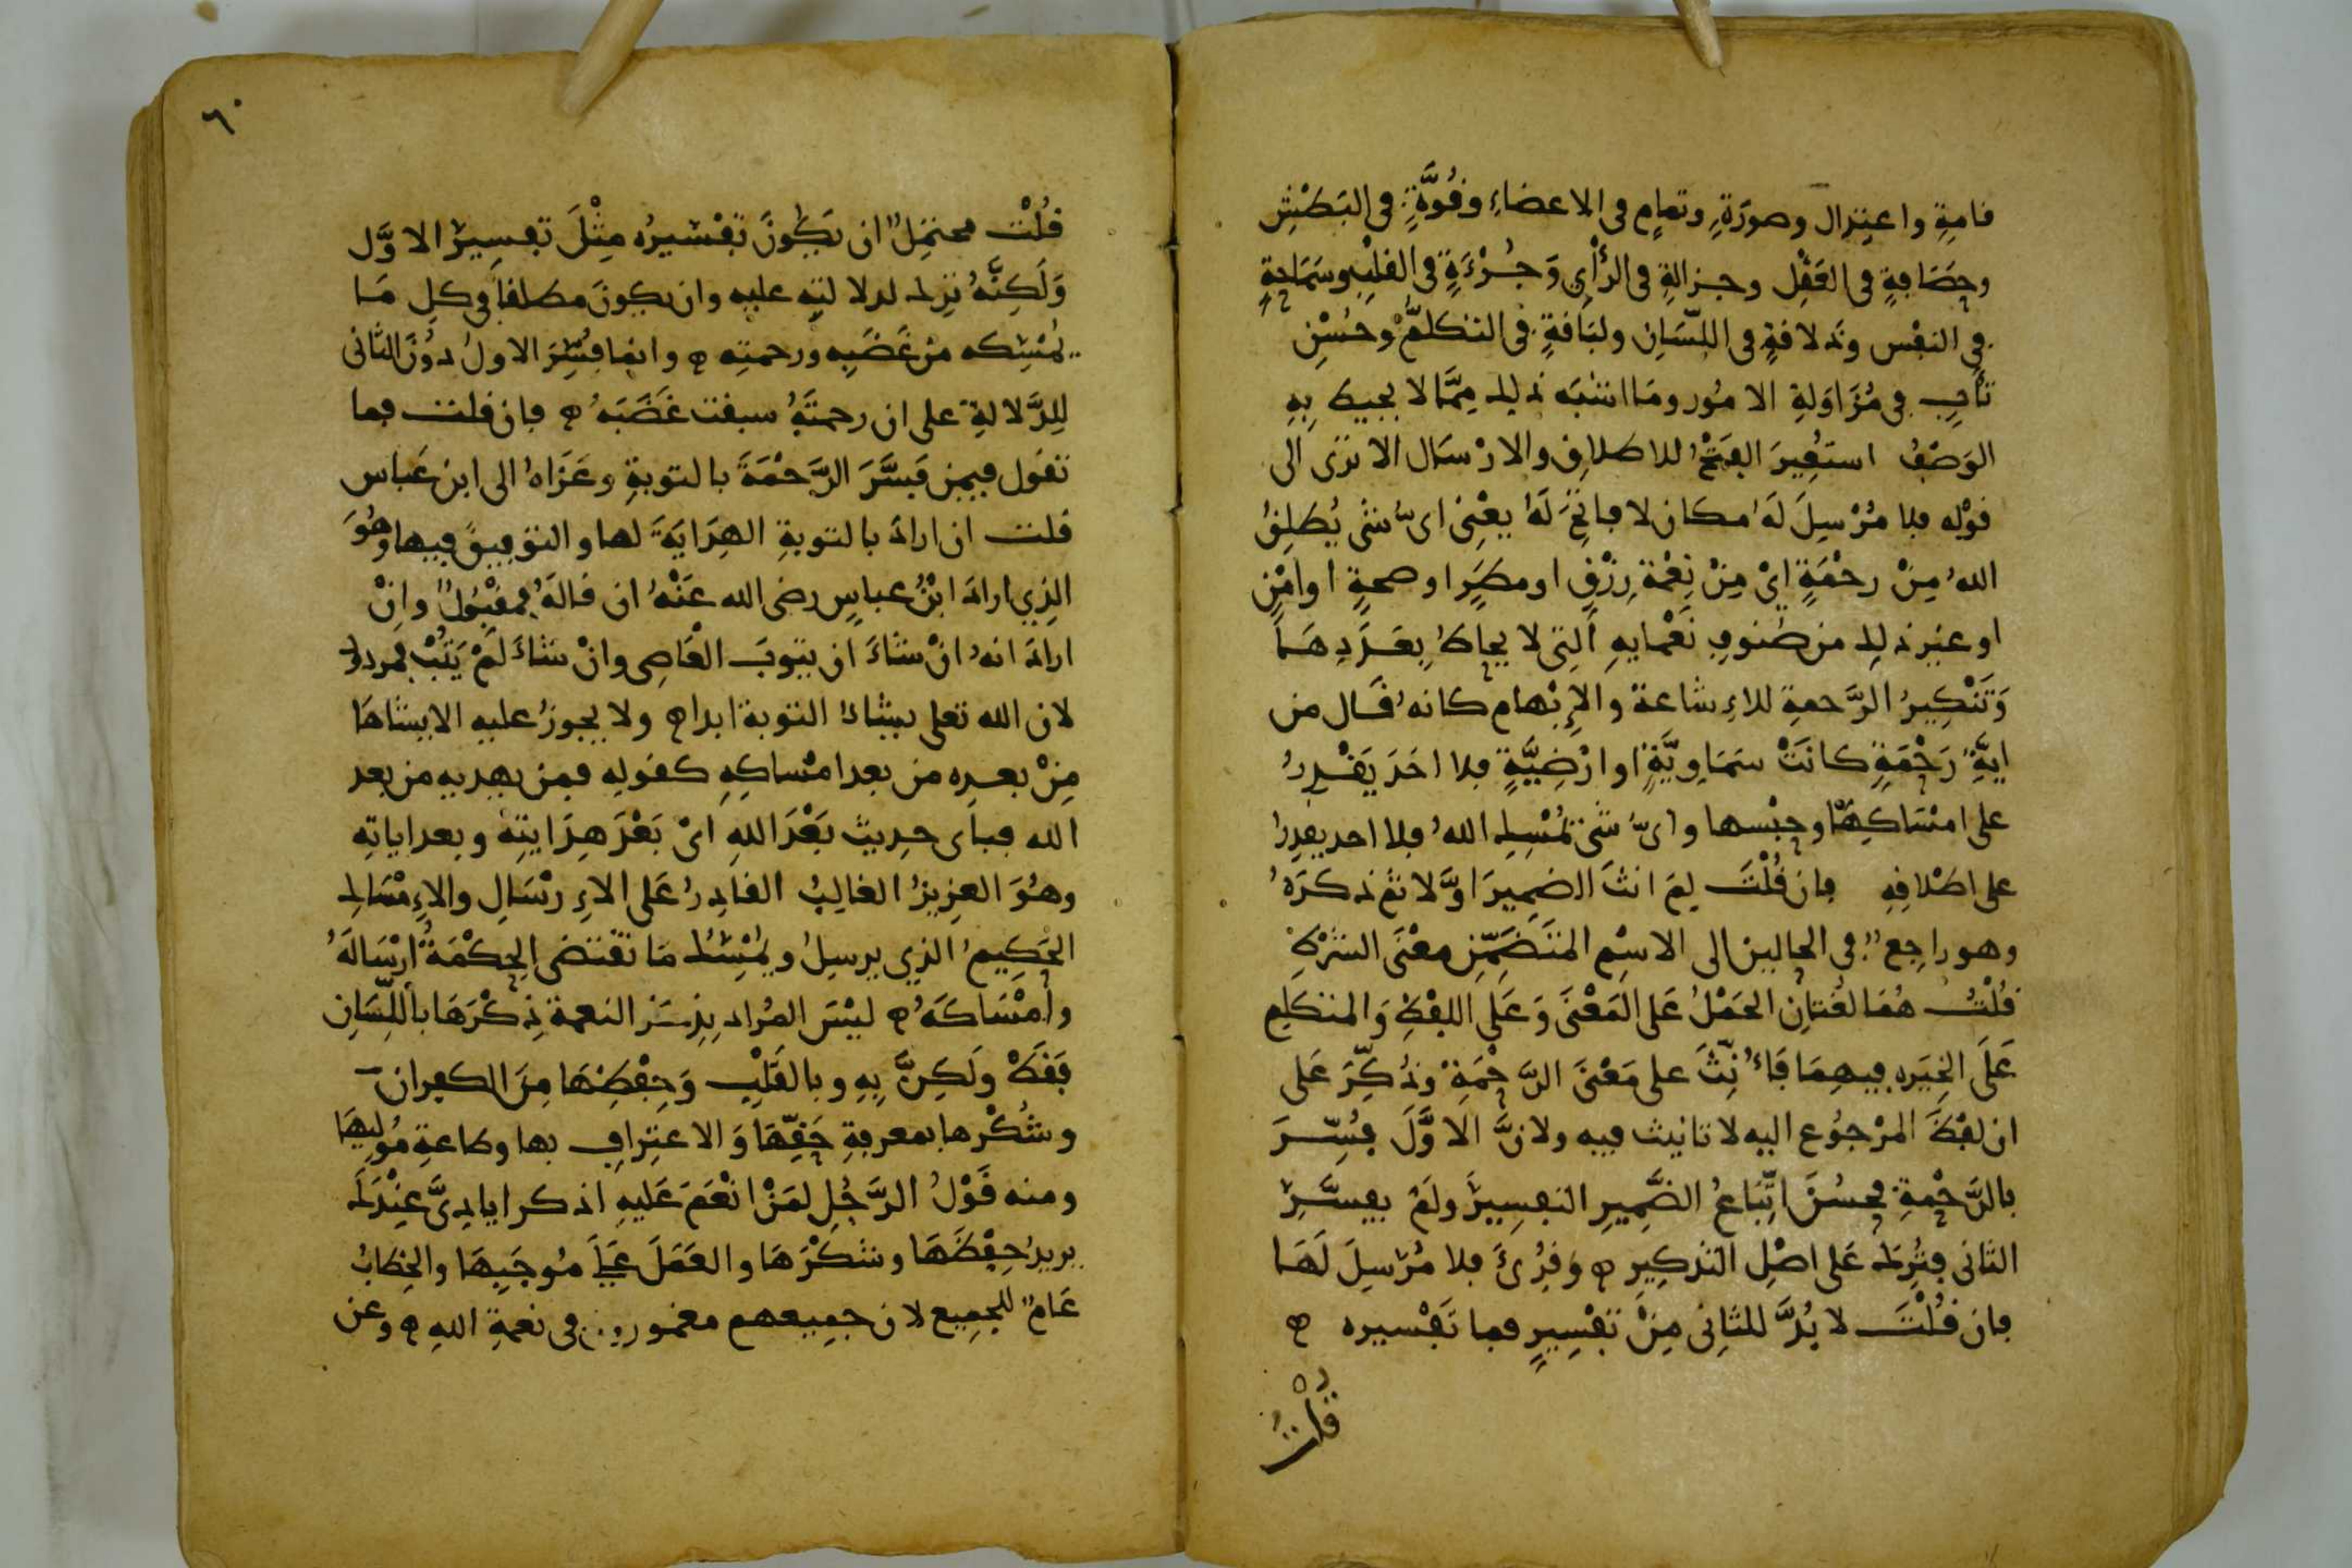 قامةِ واعتِدال وصورَةِ وتمامٍ في الاعضاءِ وقُوَّةٍ في البَطْشِ
وحَصَافةٍ في العَقْلِ وجزالةٍ في الرَّأْيِ وَجُرْءَةٍ في القلْبِ وسَمَاحةٍ
في النفْس وذَلاقةٍ في اللِّسَانِ ولبَاقةٍ في التكلُّمِ وحُسْنِ
تأتٍ في مُزَاوَلةِ الامُور ومَا اشبَه ذلك مِمَّا لا يحيط بِهِ
الوَصْفُ استعُيرَ الفَتْحُ للاطلاقِ والارْسَال الا ترى الى
قوْلِه فلا مُرْسِلَ لَهُ مكان لا فاتِحَ لَهُ يعْنِي اىُّ شىء يُطلِقُ
اللهُ مِنْ رحْمَةٍ اىْ مِنْ نِعْمَةِ رِزْقٍ او مطَرٍ او صحةٍ او امْنٍ
او غير ذلك من صُنوفِ نَعْمايهِ الَّتِي لا يحاطُ بِعَدَدِهَا
وَتَنْكِيرُ الرَّحمةِ للاِشاعة والاِبْهام كانهُ قَال من
ايَّةِ رَحْمَةٍ كانَتْ سَمَاوِيَّةٍ او ارْضِيَّةٍ فلا احَدَ يَقْدِرُ
على امْسَاكِهَا وحبْسها واىُّ شىء يُمْسِك اللهُ فلا احد يقدِرُ
على اطْلاقِهِ فان قُلْتَ لِمَ انثَ الضمِيرَ اوَّلا ثم ذكرَهُ
وهو راجِعٌ في الحالين الى الاسْمِ المتَضَمِّنِ معْنَى الشرْطِ
قُلْتُ هُمَا لغُتانِ الحَمْلُ عَلى المَعْنَى وَعَلَى اللفْظِ وَالمتكلِم
عَلَى الخِيَرِه فيهِمَا فَأُنِّثَ على مَعْنَى الرَّحْمَةِ وذُكِّرَ عَلى
ان لفْظَ المرْجُوع اليه لا تانيث فيه ولانَّ الاوَّلَ فُسِّرَ
بالرَّحْمةِ فحسُنَ اتِّبَاعُ الضَّمِيرِ التفسِيرَ ولَمْ يفسَّرِ
الثانى فتُرِك عَلى اصْلِ التذكيرِ ه وَقُرِئَ فلا مُرْسِلَ لَهَا
فان قُلْتَ لا بُدَّ للثانى مِنْ تفْسِيرٍ فما تَفْسيره ه
قلتُ
٦٠
قُلْتُ محتمَلٌ ان يَكُونَ تَفْسيرُه مِثْلَ تفسِيرِ الاوَّل
وَلَكِنَّهُ تُرِك لدلالتِه عليه وان يكونَ مطلقاً في كلِ مَا
يُمْسِكه مِنْ غَضَبِه ورحمتِه ه وانما فُسِّرَ الاولُ دوُنَ الثانى
لِلدَّلالةِ على ان رحمتَهُ سبقت غَضَبَهُ ه فان قلت فما
تقول فيمن فَسَّرَ الرَّحْمَةَ بالتوبةِ وعَزَاهُ الى ابن عَباس
قلت ان ارادَ بالتوبةِ الهِدَايَةَ لها والتوفيقَ فيها وَهُوَ
الذِي ارادَ ابْنُ عباسٍ رضي الله عَنْهُ ان قالَهُ فمقْبُولٌ وانْ
ارادَ انهُ انْ شاءَ ان يتوبَ العَاصى وانْ شاءَ لَمْ يَتُبْ فمردود
لان الله تعلى يشاءُ التوبة ابدا ه ولا يجوزُ عليه الا يشاهَا
مِنْ بعدِه من بعد امْساكِهِ كقولِه فمن يهديه من بعد
الله فباى حديث بَعْدَ اللهِ اىْ بَعْدَ هِدَايتِهِ وبعد اياتِه
وهوَ العزِيزُ الغالِبُ القادِرُ عَلى الاِرْسَالِ والاِمْسَاك
الحَكِيمُ الذِي يرسِلُ ويُمْسِكُ مَا تقْتضى الحِكْمَةُ ارْسَالَهُ
وامْسَاكَهُ ه ليْسَ المُراد بِذِكْر النعمة ذِكْرَهَا باللِّسَانِ
فقَطْ ولَكِنَّ بِهِ وبالقَلْبِ وَحِفْظِهَا مِنَ الكفران
وشُكْرِها بمعرفةِ حَقِّهَا وَالاعتِرافِ بها وطاعةِ مُولِيهَا
ومنه قَوْلُ الرَّجُلِ لِمَنْ انْعَمَ عَليهِ اذكر ايادِىَّ عِنْدَكَ
يريدُ حِفْظَهَا وشكْرَهَا والعَمَلَ عَلَى مُوجَبِهَا والخِطَابُ
عَامٌ للجمِيع لان جمِيعهم مغمورون في نعمةِ اللهِ ه وعن